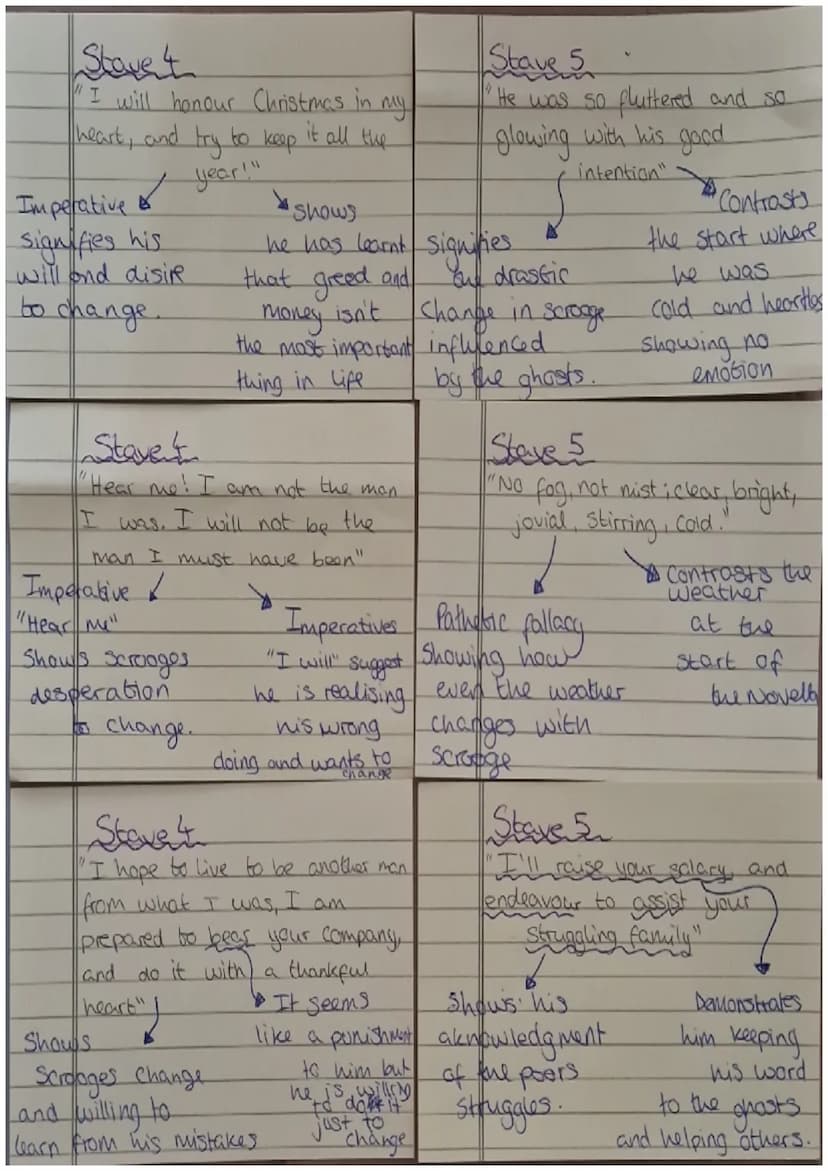 Stave 4
"I will honour Christmas in my
heart, and try to keep it all the
year!"
Imperative
signifies his
will and disire
to change.
shows
he has learnt
that greed and
money isn't
the most important
thing in life
Stave 5
"He was so fluttered and so
glowing with his good
intention"
signifies
the drastic
change in scrooge
influenced
by the ghosts.
Contrasts
the start where
he was
cold and heartles
showing no
emotion
Stave 4
"Hear me! I am not the man
I was. I will not be the
man I must have been"
Imperative
"Hear me"
Shows scrooges
desperation
to change.
Imperatives
"I will" suggest
he is realising
his wrong
doing and wants to
change
Stave 5
"No fog, not mist; clear, bright,
jovial, stirring, cold."
Pathetic fallacy
showing how
even the weather
changes with
scrooge
contrasts the
weather
at the
start of
the Novella
Stave 4
"I hope to live to be another man
from what I was, I am
prepared to bear your company,
and do it with a thankful
heart"
Shows
scrooges change
and willing to
learn from his mistakes
It seems
like a punishment
to him but
he is willing
to do it
just to
change
Stave 5
"I'll raise your salary and
endeavour to assist your
struggling family"
Shows his
aknowledgment
of the poers
struggles.
Demonstrates
him keeping
his word
to the ghosts
and helping others.